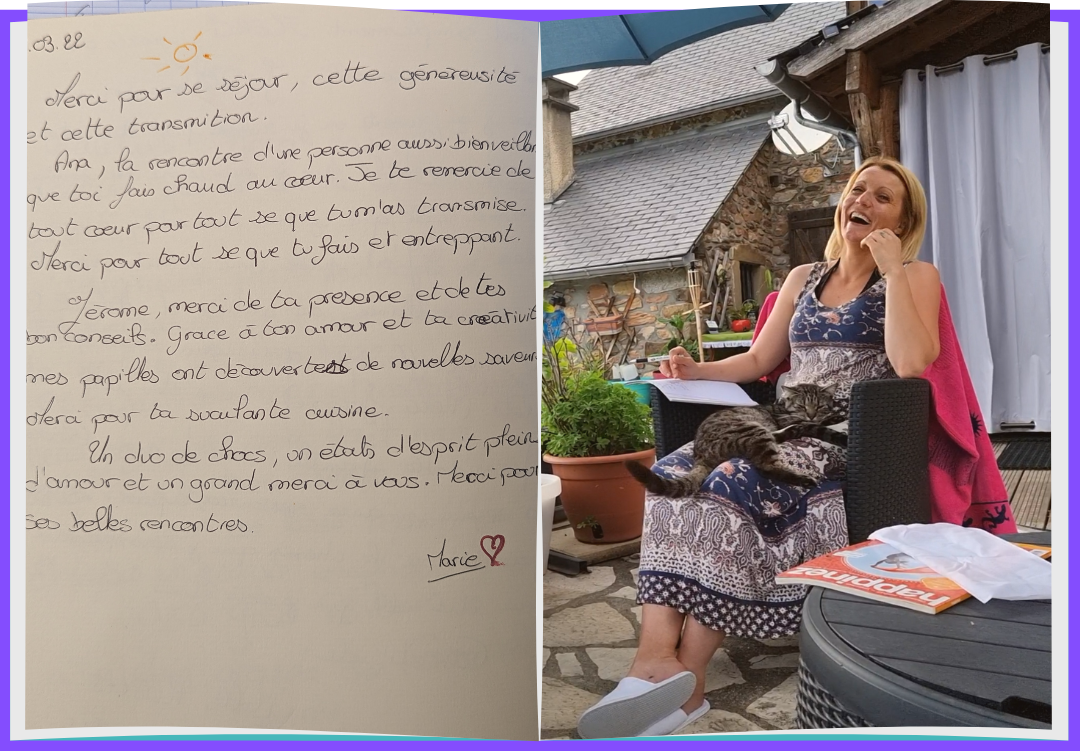 .03.22
Merci pour se séjour, cette généreusité
et cette transmition.
Ana, la rencontre d'une personne aussi bienveillan
que toi fais chaud au cœur. Je te remercie de
tout cœur pour tout se que tu m'as transmise.
Merci pour tout se que tu fais et entreppant.
Jérome, merci de ta presence et de tes
bon conseils. Grace à ton amour et ta créativit
mes papilles ont découvert de nouvelles saveur
Merci pour ta sucufante cuisine.
Un duo de chocs, un états d'esprit plein
d'amour et un grand merci à vous. Merci pour
ses belles rencontres.
Marie
happinez